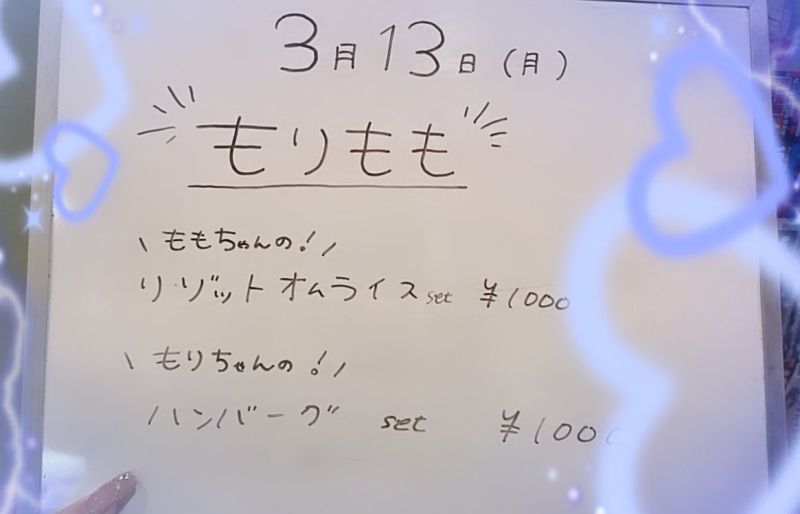 3月13日(月)
もりもも
\ ももちゃんの! /
リゾットオムライス set ¥1000
\ もりちゃんの! /
ハンバーグ set ¥1000